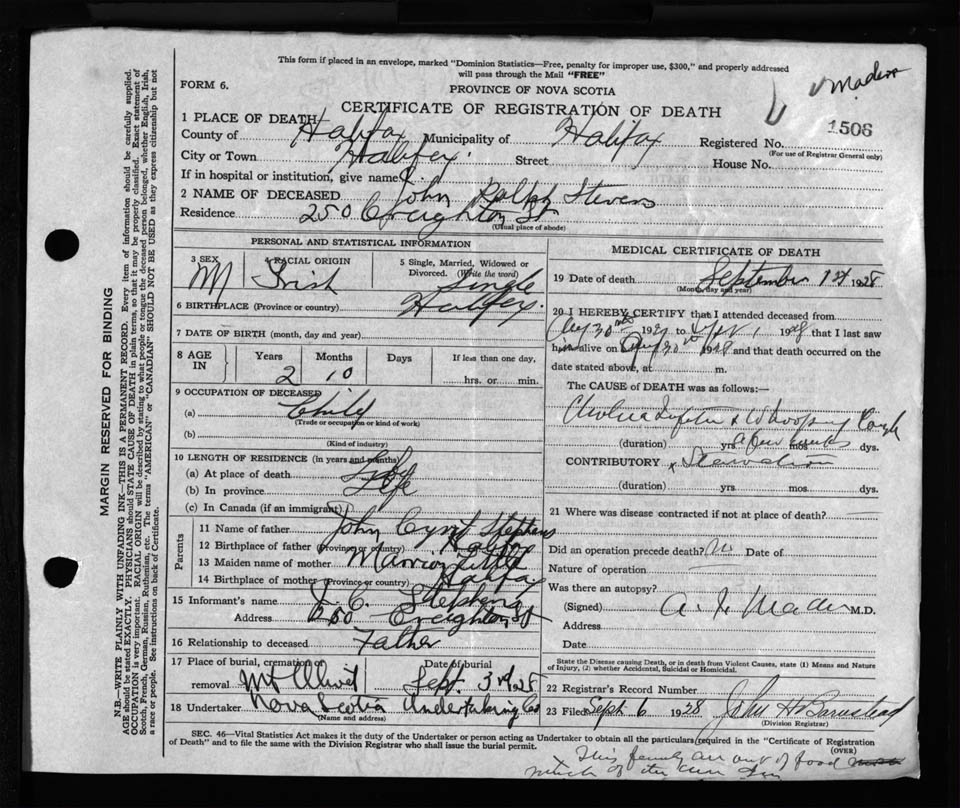 This form if placed in an envelope, marked "Dominion Statistics—Free, penalty for improper use, $300," and properly addressed
will pass through the Mail "FREE"
FORM 6.
PROVINCE OF NOVA SCOTIA
CERTIFICATE OF REGISTRATION OF DEATH
1506
1 PLACE OF DEATH
County of Halifax Municipality of Halifax Registered No.
(For use of Registrar General only)
City or Town Halifax. Street House No.
If in hospital or institution, give name
2 NAME OF DECEASED John Ralph Stevens
Residence 250 Creighton St
(Usual place of abode)
PERSONAL AND STATISTICAL INFORMATION
3 SEX M
4 RACIAL ORIGIN Irish
5 Single, Married, Widowed or Divorced. (Write the word) Single
6 BIRTHPLACE (Province or country) Halifax.
7 DATE OF BIRTH (month, day and year)
8 AGE IN Years 2 Months 10 Days If less than one day, hrs. or min.
9 OCCUPATION OF DECEASED
(a) Child
(Trade or occupation or kind of work)
(b)
(Kind of industry)
10 LENGTH OF RESIDENCE (in years and months)
(a) At place of death Life
(b) In province Life
(c) In Canada (if an immigrant)
Parents
11 Name of father John Stephens
12 Birthplace of father (Province or country)
13 Maiden name of mother
14 Birthplace of mother (Province or country) Halifax
15 Informant's name J. C. Stephens
Address 250 Creighton St
16 Relationship to deceased Father
17 Place of burial, cremation or removal Mt Olivet Date of burial Sept. 3rd 1928
18 Undertaker Nova Scotia Undertaking Co
(Name and address)
MEDICAL CERTIFICATE OF DEATH
19 Date of death September 1st 1928
(Month, day and year)
20 I HEREBY CERTIFY that I attended deceased from
Aug 30 to 1, 1928 that I last saw
him alive on Aug 30 1928 and that death occurred on the
date stated above, at m.
The CAUSE of DEATH was as follows:—
Cholera & Whooping Cough
(duration) yrs. a few mos. weeks dys.
CONTRIBUTORY Starvation
(duration) yrs. mos. dys.
21 Where was disease contracted if not at place of death?
Did an operation precede death? No Date of
Nature of operation
Was there an autopsy?
(Signed) M.D.
Address
Date
State the Disease causing Death, or in death from Violent Causes, state (1) Means and Nature
of Injury, (2) whether Accidental, Suicidal or Homicidal.
22 Registrar's Record Number
23 Filed Sept 6 1928 John H Barnstead
(Division Registrar)
SEC. 46—Vital Statistics Act makes it the duty of the Undertaker or person acting as Undertaker to obtain all the particulars required in the "Certificate of Registration
of Death" and to file the same with the Division Registrar who shall issue the burial permit.
(OVER)
This family are out of food
much of the time
MARGIN RESERVED FOR BINDING
N.B.—WRITE PLAINLY WITH UNFADING INK—THIS IS A PERMANENT RECORD. Every item of information should be carefully supplied.
AGE should be stated EXACTLY. PHYSICIANS should STATE CAUSE OF DEATH in plain terms, so that it may be properly classified. Exact statement of
OCCUPATION is very important. RACIAL ORIGIN will be described by stating to what people or tongue the deceased person belonged, whether English, Irish,
Scotch, French, German, Russian, Ruthenian, etc. The terms "AMERICAN" or "CANADIAN" SHOULD NOT BE USED as they express citizenship but not
a race or people. See instructions on back of Certificate.